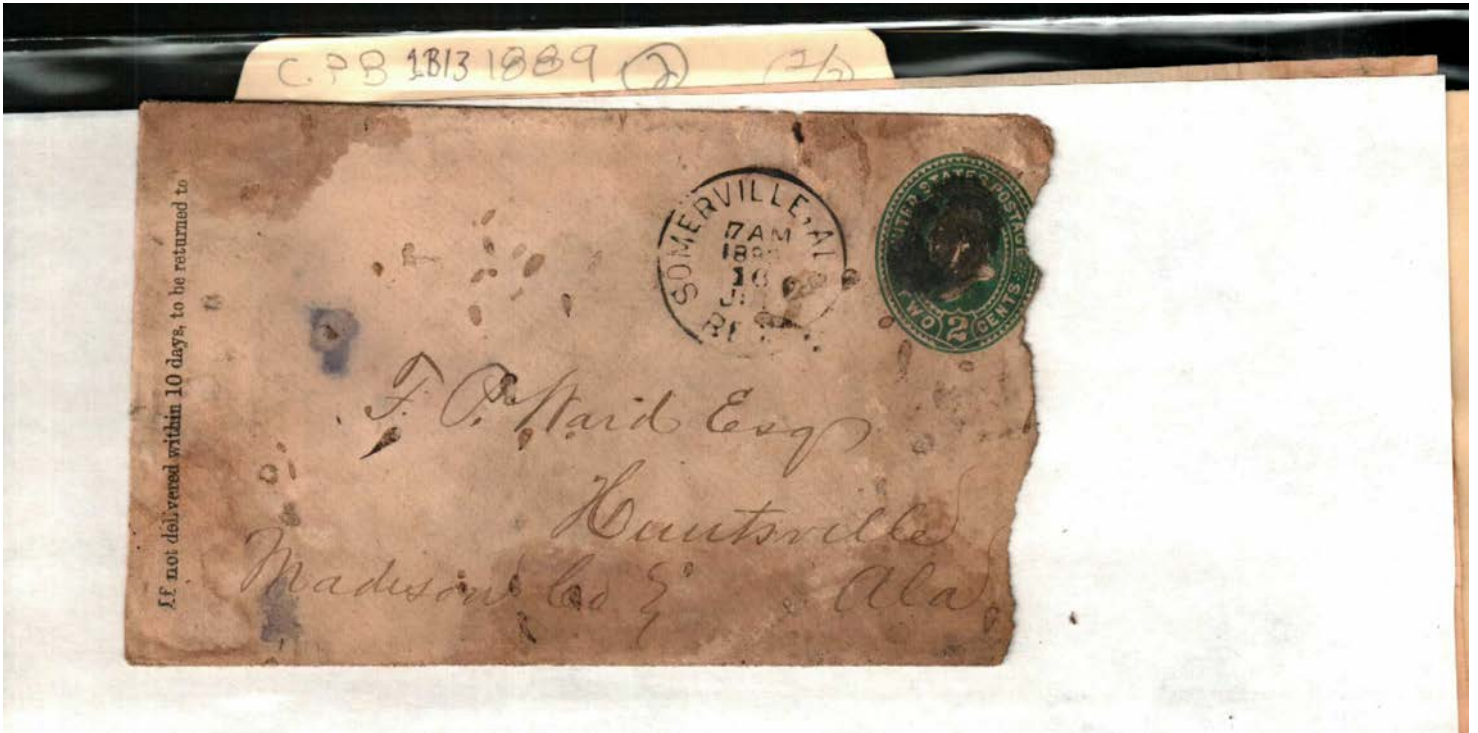 C.PB 1B13 1889 (2) (2/2)
If not delivered within 10 days, to be returned to
SOMERVILLE, AL
7 AM
16
UNITED STATES POSTAGE
TWO 2 CENTS
F. P. Ward Esq
Huntsville
Madison Co Ala